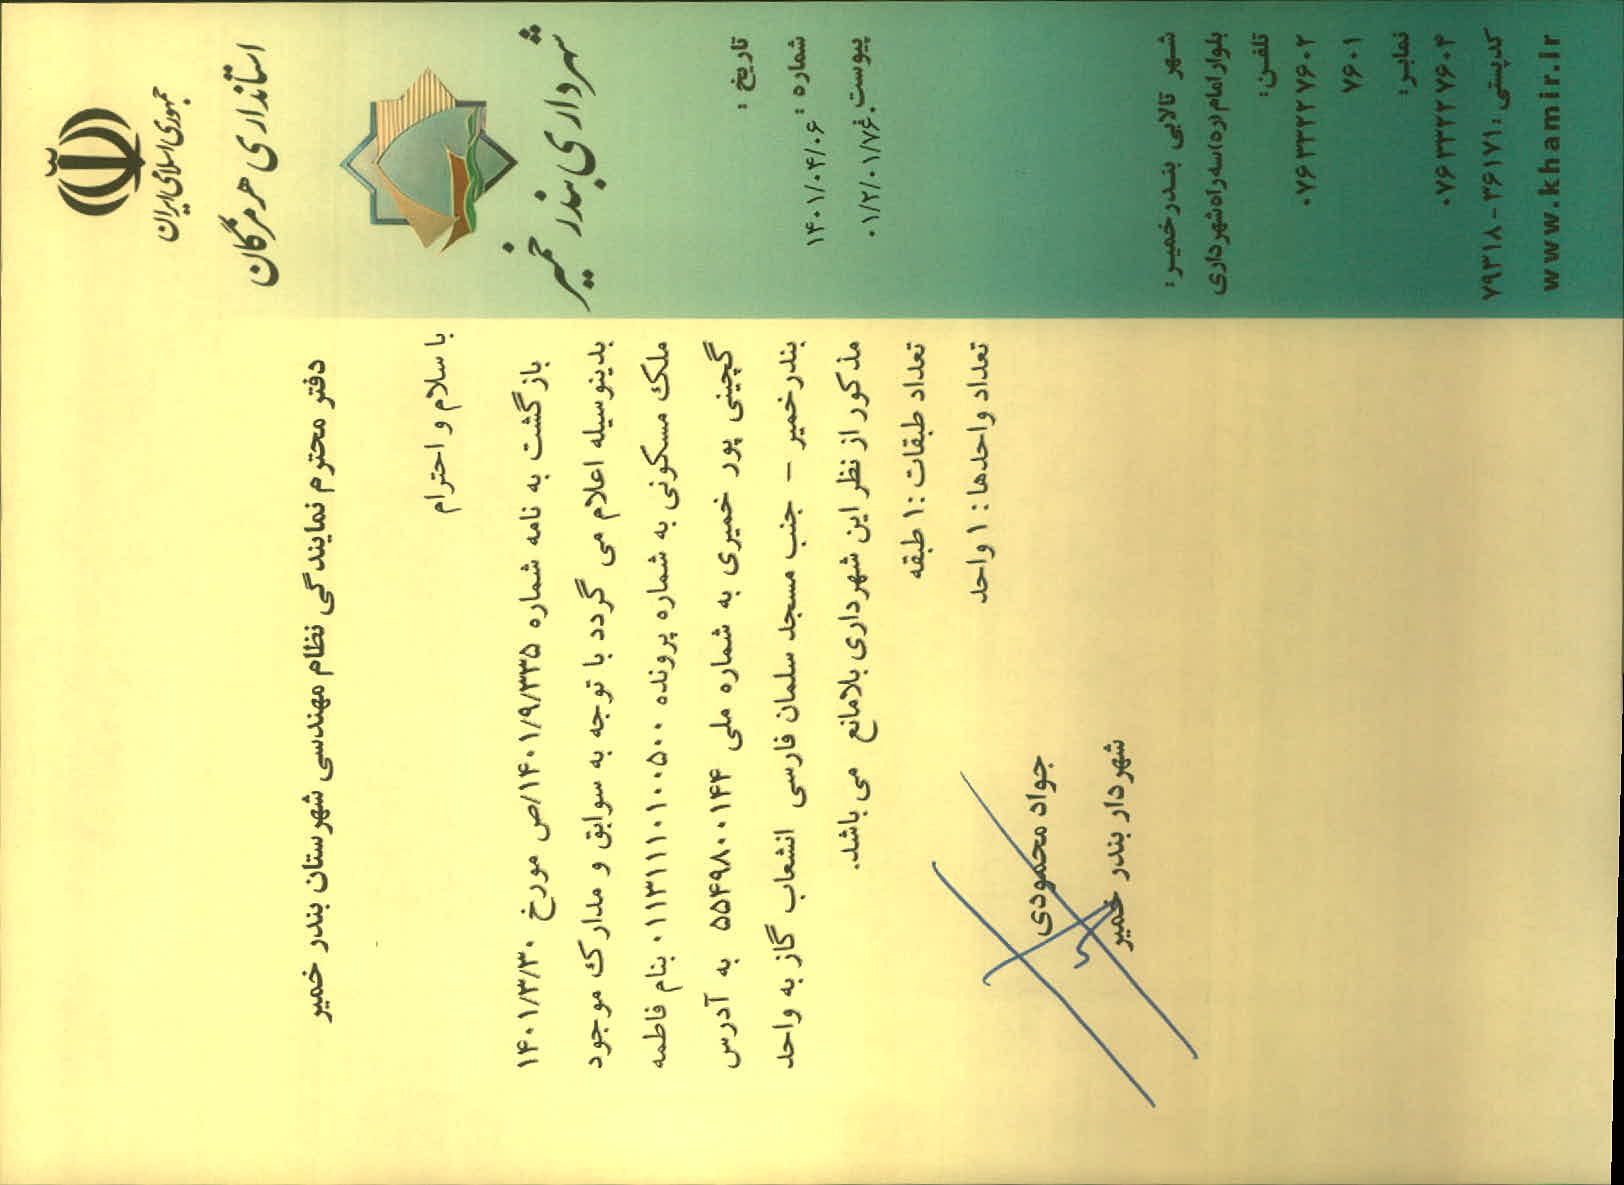 جمهوری اسلامی ایران
استانداری هرمزگان
شهرداری بندر خمیر
تاریخ :
شماره : ۱۴۰۱/۰۴/۰۶
پیوست: ۰۱/۲/۰۱/۷۶
دفتر محترم نمایندگی نظام مهندسی شهرستان بندر خمیر
با سلام و احترام
بازگشت به نامه شماره ۱۴۰۱/۹/۳۳۵/ص مورخ ۱۴۰۱/۳/۳۰
بدینوسیله اعلام می گردد با توجه به سوابق و مدارک موجود
ملک مسکونی به شماره پرونده ۰۱۱۳۱۱۱۰۱۰۰۵۰۰ بنام فاطمه
گچینی پور خمیری به شماره ملی ۵۵۴۹۸۰۰۱۴۴ به آدرس
بندرخمیر - جنب مسجد سلمان فارسی انشعاب گاز به واحد
مذکور از نظر این شهرداری بلامانع می باشد.
تعداد طبقات : ۱ طبقه
تعداد واحدها : ۱ واحد
جواد محمودی
شهردار بندر خمیر
شهر تالابی بندرخمیر:
بلوار امام (ره) سه راه شهرداری
تلفن:
۰۷۶۳۳۲۲۷۶۰۲
۷۶۰۱
نمابر:
۰۷۶۳۳۲۲۷۶۰۴
کدپستی: ۳۶۱۷۱-۷۹۳۱۸
www.khamir.ir